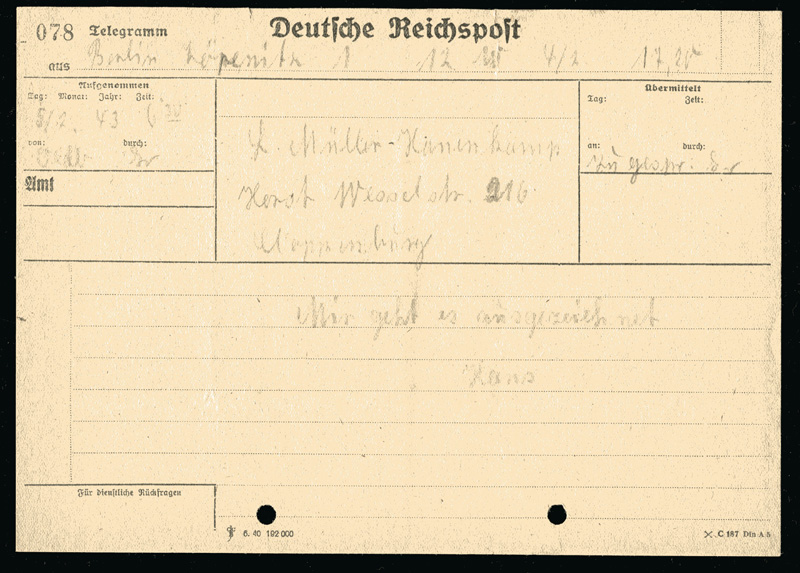 078 Telegramm Deutsche Reichspost
aus Berlin Köpenick 1 12 W 4/2 17,20
Aufgenommen
Tag: Monat: Jahr: Zeit:
5/2. 43
von: durch:
Amt
L. Müller-Hanenkamp
Horst Wesselstr. 216
Cloppenburg
Übermittelt
Tag: Zeit:
an: durch:
Zugespr.
Mir geht es ausgezeichnet
Hans
Für dienstliche Rückfragen
6. 40 192 000
C 187 Din A 5